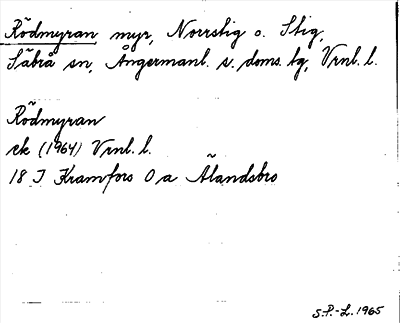 Rödmyran myr, Norrstig o. Stig,
Säbrå sn, Ångermanl. s. doms. tg, Vrnl. l.
Rödmyran
ek (1964) Vrnl. l.
18 I Kramfors 0 a Älandsbro
S.P.-L. 1965